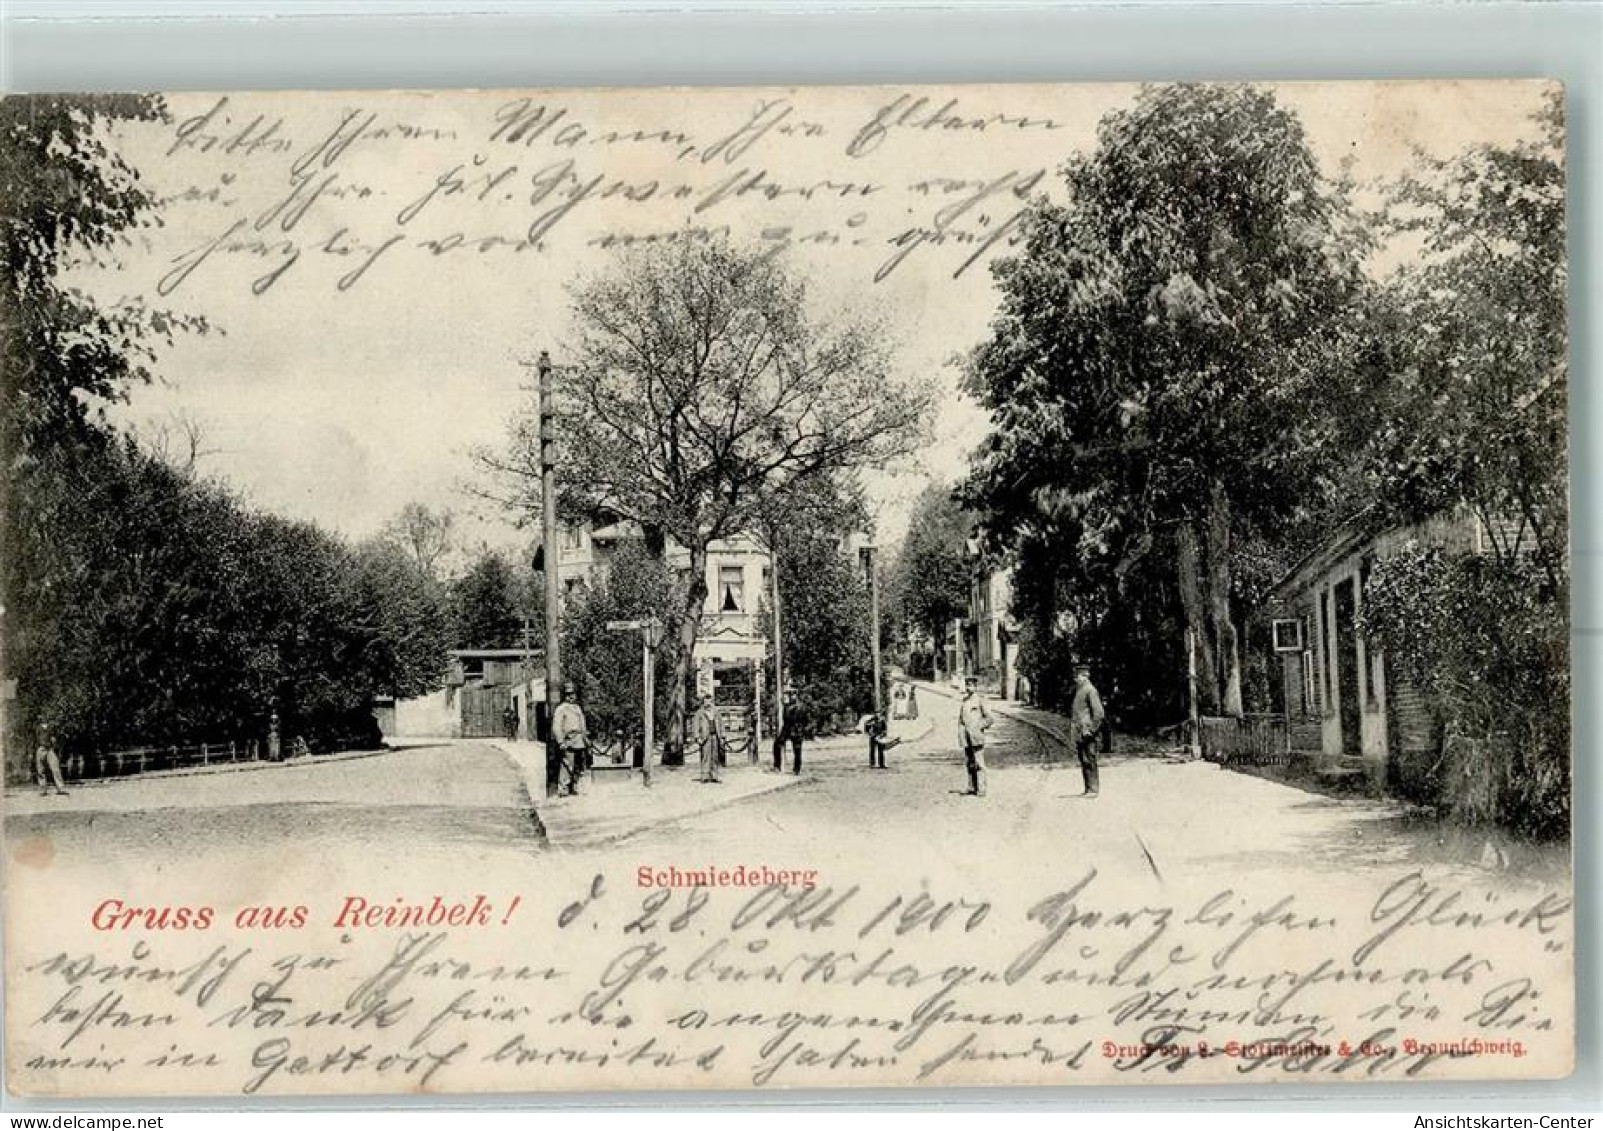 Bitte Ihren Mann, Ihre Eltern
u. Ihre Frl. Schwestern recht
herzlich von mir zu grüß
Schmiedeberg
Gruss aus Reinbek!
d. 28. Okt 1900 Herzlichen Glück
wunsch zu Ihrem Geburtstage und nochmals
besten Dank für die angenehmen Stunden, die Sie
mir in Gettorf bereitet haben sendet Fr.
Druck von L. Stottmeister & Co., Braunschweig.
Ansichtskarten-Center